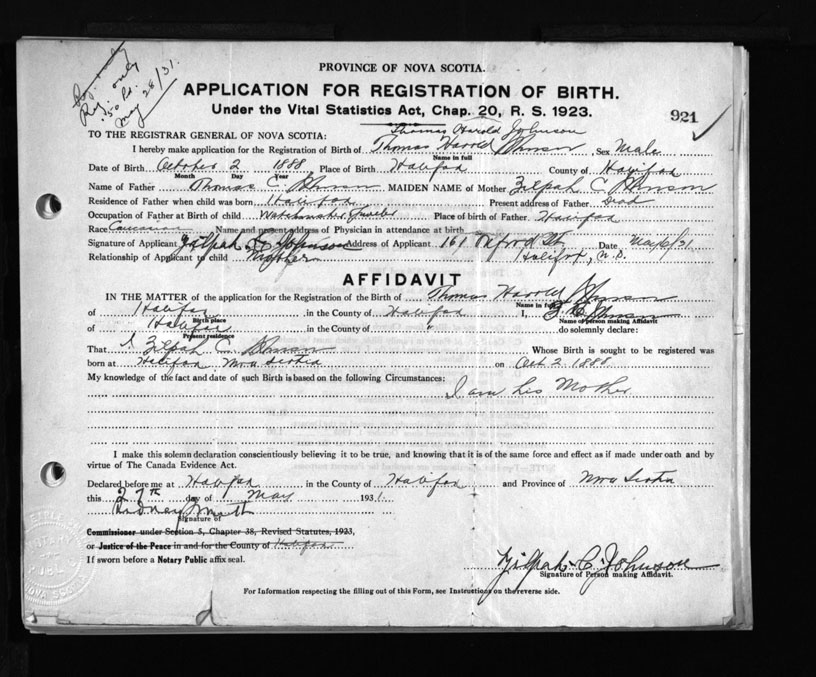 Reg. only
50 Pd.
May 28/31.
PROVINCE OF NOVA SCOTIA.
APPLICATION FOR REGISTRATION OF BIRTH.
Under the Vital Statistics Act, Chap. 20, R. S. 1923.
921
TO THE REGISTRAR GENERAL OF NOVA SCOTIA:
Thomas Harold Johnson
I hereby make application for the Registration of Birth of Thomas Harold Johnson Sex Male
Name in full
Date of Birth October 2 1888 Place of Birth Halifax County of Halifax
Month Day Year
Name of Father Thomas C. Johnson MAIDEN NAME of Mother Zilpah C Johnson
Residence of Father when child was born Halifax Present address of Father Dead
Occupation of Father at Birth of child Watchmaker Jeweler Place of birth of Father Halifax
Race Caucasian Name and present address of Physician in attendance at birth
Signature of Applicant Zilpah C. Johnson Address of Applicant 161 Oxford St. Date May 6/31
Relationship of Applicant to child Mother Halifax, N.S.
AFFIDAVIT
IN THE MATTER of the application for the Registration of the Birth of Thomas Harold Johnson
Name in full
of Halifax in the County of Halifax I, Z C Johnson
Birth place Name of person making Affidavit
of Halifax in the County of " do solemnly declare:
Present residence
That I Zilpah C. Johnson Whose Birth is sought to be registered was
born at Halifax Nova Scotia on Oct 2 1888
My knowledge of the fact and date of such Birth is based on the following Circumstances:
I am his Mother
I make this solemn declaration conscientiously believing it to be true, and knowing that it is of the same force and effect as if made under oath and by
virtue of The Canada Evidence Act.
Declared before me at Halifax in the County of Halifax and Province of Nova Scotia
this 27th day of May 1931.
Sidney Smith
Signature of
Commissioner under Section 5, Chapter 38, Revised Statutes, 1923,
or Justice of the Peace in and for the County of Halifax
If sworn before a Notary Public affix seal.
Zilpah C. Johnson
Signature of Person making Affidavit.
For Information respecting the filling out of this Form, see Instructions on the reverse side.